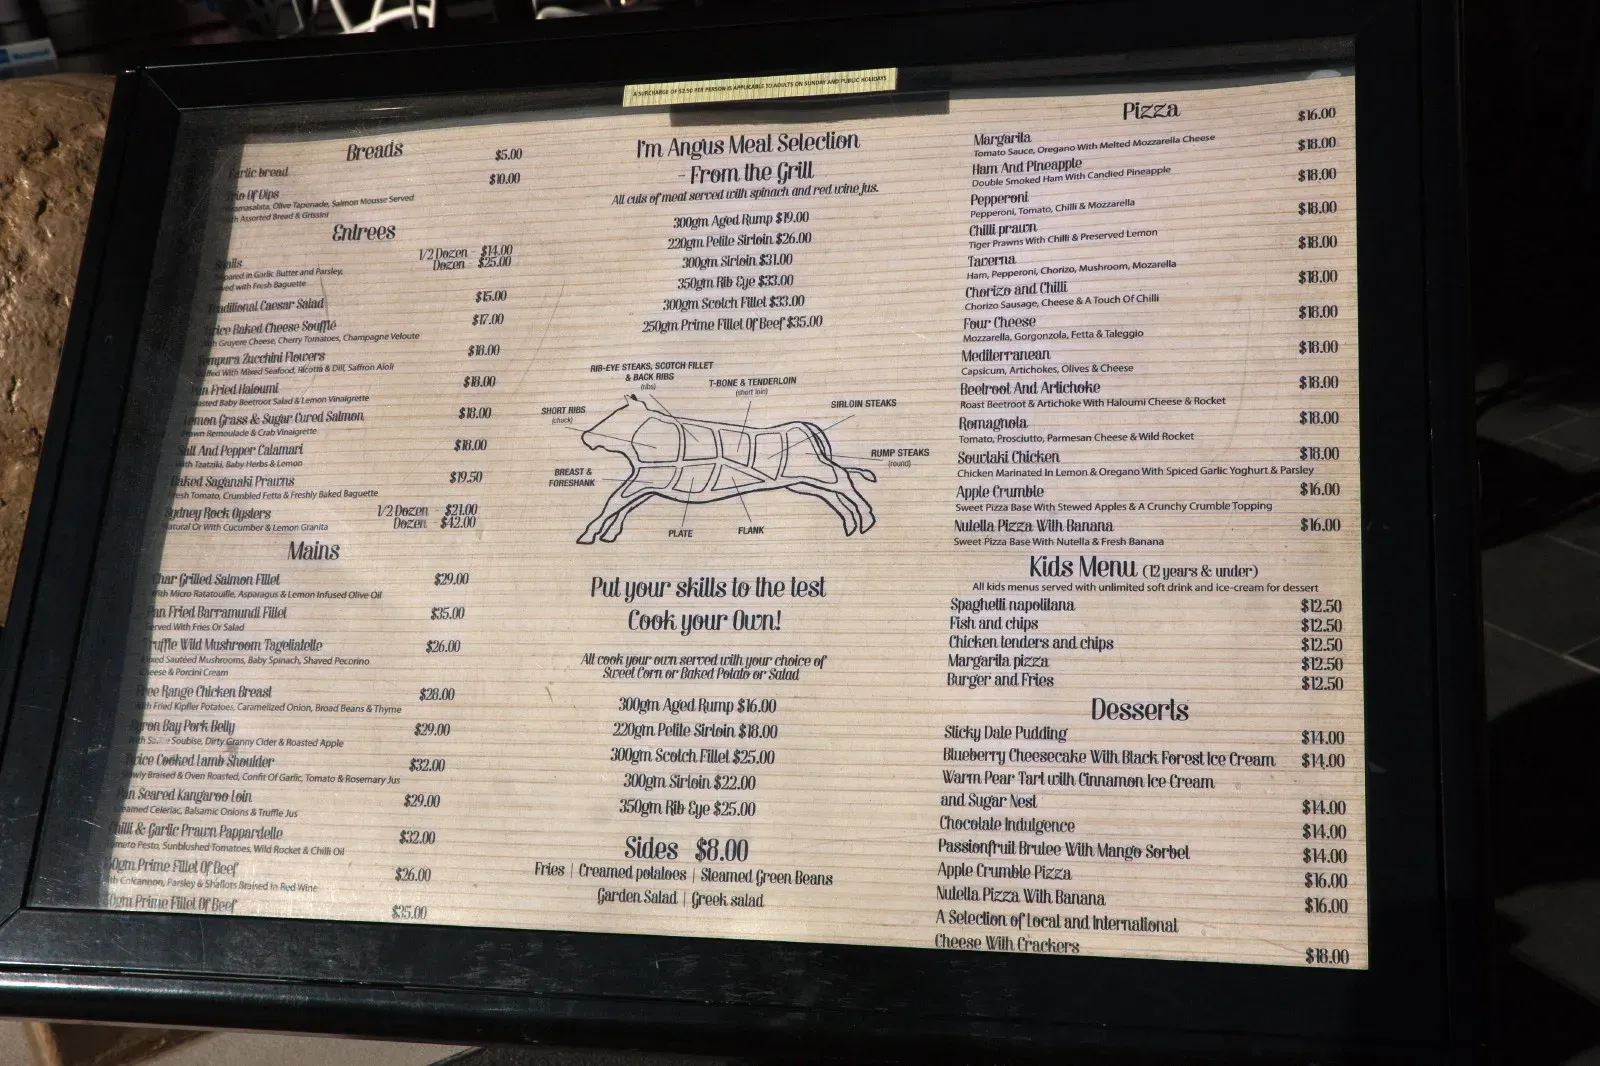 A SURCHARGE OF $2.50 PER PERSON IS APPLICABLE TO ADULTS ON SUNDAY AND PUBLIC HOLIDAYS
Breads
Garlic bread $5.00
Trio Of Dips $10.00
Taramasalata, Olive Tapenade, Salmon Mousse Served
With Assorted Bread & Grissini
Entrees
Snails 1/2 Dozen - $14.00
Dozen - $25.00
Prepared in Garlic Butter and Parsley,
Served with Fresh Baguette
Traditional Caesar Salad $15.00
Twice Baked Cheese Soufflé $17.00
With Gruyere Cheese, Cherry Tomatoes, Champagne Veloute
Tempura Zucchini Flowers $18.00
Stuffed With Mixed Seafood, Ricotta & Dill, Saffron Aioli
Pan Fried Haloumi $18.00
Roasted Baby Beetroot Salad & Lemon Vinaigrette
Lemon Grass & Sugar Cured Salmon $18.00
Prawn Remoulade & Crab Vinaigrette
Salt And Pepper Calamari $18.00
With Tzatziki, Baby Herbs & Lemon
Baked Saganaki Prawns $19.50
Fresh Tomato, Crumbled Fetta & Freshly Baked Baguette
Sydney Rock Oysters 1/2 Dozen - $21.00
Dozen - $42.00
Natural Or With Cucumber & Lemon Granita
Mains
Char Grilled Salmon Fillet $29.00
With Micro Ratatouille, Asparagus & Lemon Infused Olive Oil
Pan Fried Barramundi Fillet $35.00
Served With Fries Or Salad
Truffle Wild Mushroom Tagliatelle $26.00
Mixed Sautéed Mushrooms, Baby Spinach, Shaved Pecorino
Cheese & Porcini Cream
Free Range Chicken Breast $28.00
With Fried Kipfler Potatoes, Caramelized Onion, Broad Beans & Thyme
Byron Bay Pork Belly $29.00
With Soubise, Dirty Granny Cider & Roasted Apple
Twice Cooked Lamb Shoulder $32.00
Slowly Braised & Oven Roasted, Confit Of Garlic, Tomato & Rosemary Jus
Pan Seared Kangaroo Loin $29.00
Creamed Celeriac, Balsamic Onions & Truffle Jus
Chilli & Garlic Prawn Pappardelle $32.00
Tomato Pesto, Sunblushed Tomatoes, Wild Rocket & Chilli Oil
Prime Fillet Of Beef $26.00
With Colcannon, Parsley & Shallots Braised In Red Wine
Prime Fillet Of Beef $35.00
I'm Angus Meal Selection
- From the Grill
All cuts of meat served with spinach and red wine jus.
300gm Aged Rump $19.00
220gm Petite Sirloin $26.00
300gm Sirloin $31.00
350gm Rib Eye $33.00
300gm Scotch Fillet $33.00
250gm Prime Fillet Of Beef $35.00
RIB-EYE STEAKS, SCOTCH FILLET
& BACK RIBS
(ribs)
T-BONE & TENDERLOIN
(short loin)
SHORT RIBS
(chuck)
SIRLOIN STEAKS
RUMP STEAKS
(round)
BREAST &
FORESHANK
PLATE
FLANK
Put your skills to the test
Cook your Own!
All cook your own served with your choice of
Sweet Corn or Baked Potato or Salad
300gm Aged Rump $16.00
220gm Petite Sirloin $18.00
300gm Scotch Fillet $25.00
300gm Sirloin $22.00
350gm Rib Eye $25.00
Sides $8.00
Fries | Creamed potatoes | Steamed Green Beans
Garden Salad | Greek salad
Pizza
Margarita $16.00
Tomato Sauce, Oregano With Melted Mozzarella Cheese
Ham And Pineapple $18.00
Double Smoked Ham With Candied Pineapple
Pepperoni $18.00
Pepperoni, Tomato, Chilli & Mozzarella
Chilli prawn $18.00
Tiger Prawns With Chilli & Preserved Lemon
Taverna $18.00
Ham, Pepperoni, Chorizo, Mushroom, Mozarella
Chorizo and Chilli $18.00
Chorizo Sausage, Cheese & A Touch Of Chilli
Four Cheese $18.00
Mozzarella, Gorgonzola, Fetta & Taleggio
Mediterranean $18.00
Capsicum, Artichokes, Olives & Cheese
Beetroot And Artichoke $18.00
Roast Beetroot & Artichoke With Haloumi Cheese & Rocket
Romagnola $18.00
Tomato, Prosciutto, Parmesan Cheese & Wild Rocket
Souvlaki Chicken $18.00
Chicken Marinated In Lemon & Oregano With Spiced Garlic Yoghurt & Parsley
Apple Crumble $16.00
Sweet Pizza Base With Stewed Apples & A Crunchy Crumble Topping
Nutella Pizza With Banana $16.00
Sweet Pizza Base With Nutella & Fresh Banana
Kids Menu (12 years & under)
All kids menus served with unlimited soft drink and ice-cream for dessert
Spaghetti napolitana $12.50
Fish and chips $12.50
Chicken tenders and chips $12.50
Margarita pizza $12.50
Burger and Fries $12.50
Desserts
Sticky Date Pudding $14.00
Blueberry Cheesecake With Black Forest Ice Cream $14.00
Warm Pear Tart with Cinnamon Ice Cream
and Sugar Nest $14.00
Chocolate Indulgence $14.00
Passionfruit Brulee With Mango Sorbet $14.00
Apple Crumble Pizza $16.00
Nutella Pizza With Banana $16.00
A Selection of Local and International
Cheese With Crackers $18.00